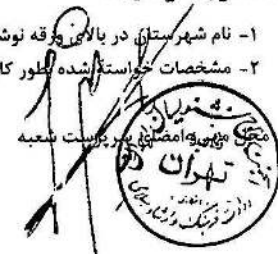 ۱- نام شهرستان در بالای ورقه نوش
۲- مشخصات خواسته شده بطور کا
محل مهر و امضای سرپرست شعبه
تهران